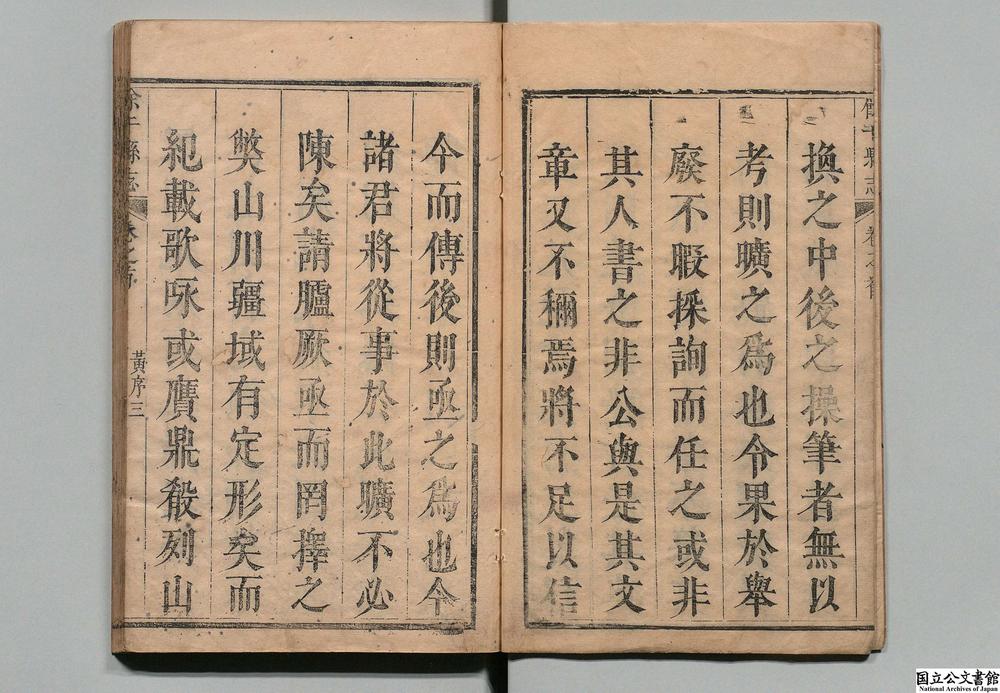 換之中後之操筆者無以
考則曠之爲也令果於舉
廢不暇採詢而任之或非
其人書之非公與是其文
章又不稱焉將不足以信
今而傳後則亟之爲也今
諸君將從事於此曠不必
陳矣請臚厥亟而罔擇之
獘山川疆域有定形矣而
紀載歌咏或贋鼎殽列山
黃序三
餘干縣志
国立公文書館
National Archives of Japan